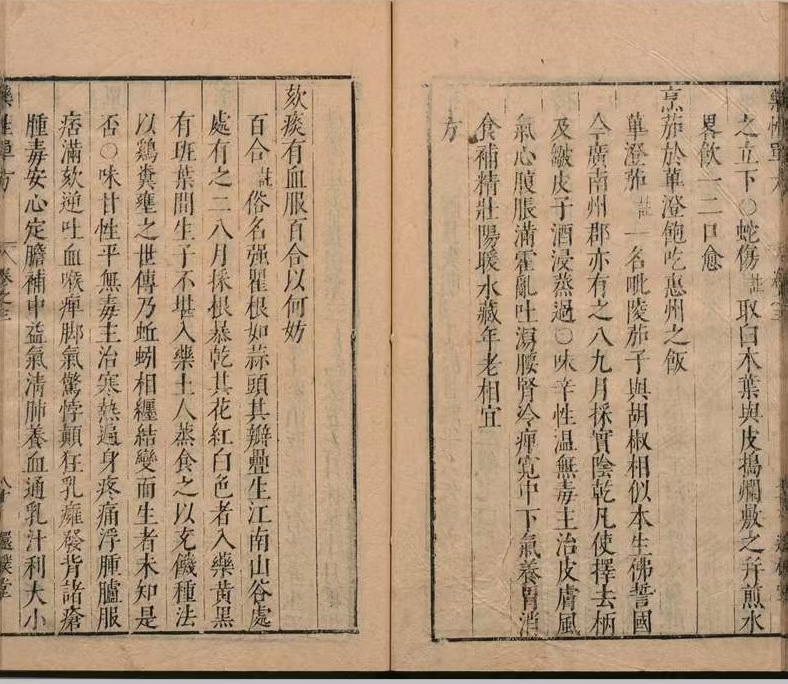 之立下○蛇傷註取白木葉與皮搗爛敷之并煎水
畧飲一二口愈
烹茄於蓽澄飽吃惠州之飯
蓽澄茄註一名毗陵茄子與胡椒相似本生佛誓國
今廣南州郡亦有之八九月採實陰乾凡使擇去柄
及皺皮子酒浸蒸過○味辛性温無毒主治皮膚風
氣心腹脹滿霍亂吐瀉腰腎冷痺寬中下氣養胃消
食補精壯陽暖水藏年老相宜
方
欬痰有血服百合以何妨
百合註俗名强瞿根如蒜頭其瓣疊生江南山谷處
處有之二八月採根暴乾其花紅白色者入藥黄黑
有班葉間生子不堪入藥土人蒸食之以充饑種法
以鷄糞壅之世傳乃蚯蚓相纒結變而生者未知是
否○味甘性平無毒主治寒熱遍身疼痛浮腫臚服
痞滿欬逆吐血喉痺脚氣驚悸顛狂乳癰發背諸瘡
腫毒安心定膽補中益氣清肺養血通乳汁利大小
藥性單方 卷之三 還樸堂